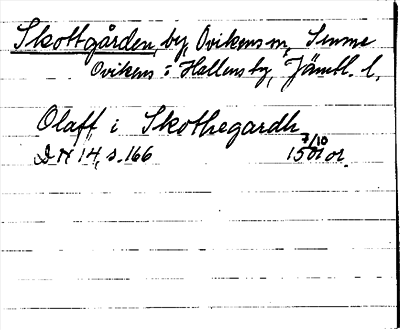 Skottgården, by, Ovikens sn, Sunne
Ovikens o Hallens tg, Jämtl. l.
Olaff i Skottegardh
7/10
DN 14, s. 166 1501 or.